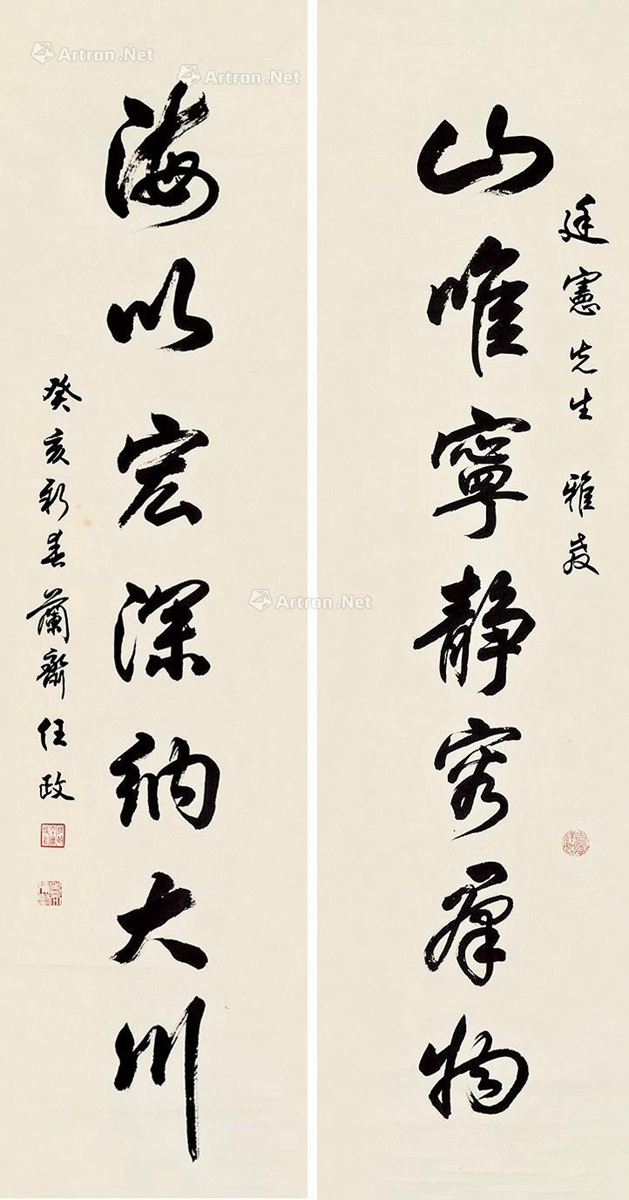 廷憲先生 雅教
山唯寧静容群物
海以宏深納大川
癸亥新春蘭齋任政
Artron.Net
Artron.Net
Artron.Net